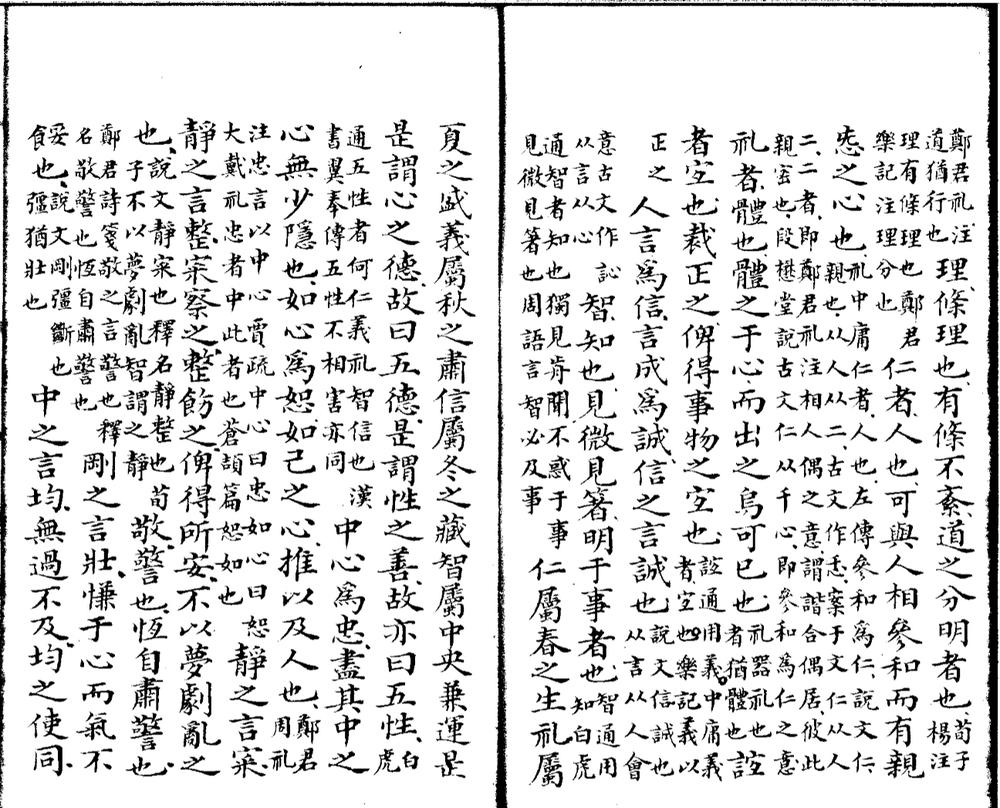 鄭君礼注道猶行也理條理也有條不紊道之分明者也荀子楊注
理有條理也鄭君樂記注理分也仁者人也可與人相參和而有親
㤅之心也礼中庸仁者人也左傳參和爲仁說文仁親也从人从二古文作忎案于文仁从人
二二者即鄭君礼注相人偶之意謂諧合偶居彼此親密也段懋堂說古文仁从千心即參和為仁之意
礼者體也體之于心而出之烏可已也礼器礼也者猶體也誼
者宐也裁正之俾得事物之宐也誼通用義中庸義者宐也樂記義以
正之人言爲信言成爲誠信之言誠也說文信誠也从言从人會
意古文作訫从言从心智知也見微見箸明于事者也智通用知白虎
通智者知也獨見歬聞不惑于事見微見箸也周語言智必及事仁屬春之生礼屬
夏之盛義屬秋之肅信屬冬之藏智屬中央兼運是
是謂心之德故曰五德是謂性之善故亦曰五性白虎
通五性者何仁義礼智信也漢書翼奉傳五性不相害亦同中心爲忠盡其中之
心無少隱也如心爲恕如己之心推以及人也鄭君周礼
注忠言以中心賈疏中心曰忠如心曰恕大戴礼忠者中此者也蒼頡篇恕如也靜之言寀
靜之言整寀察之整飭之俾得所安不以夢劇亂之
也說文靜寀也釋名靜整也荀子不以夢劇亂智謂之靜敬警也恆自肅警也
鄭君詩箋敬之言警也釋名敬警也恆自肅警也剛之言壯慊于心而氣不
餒也說文剛彊斷也彊猶壯也中之言均無過不及均之使同